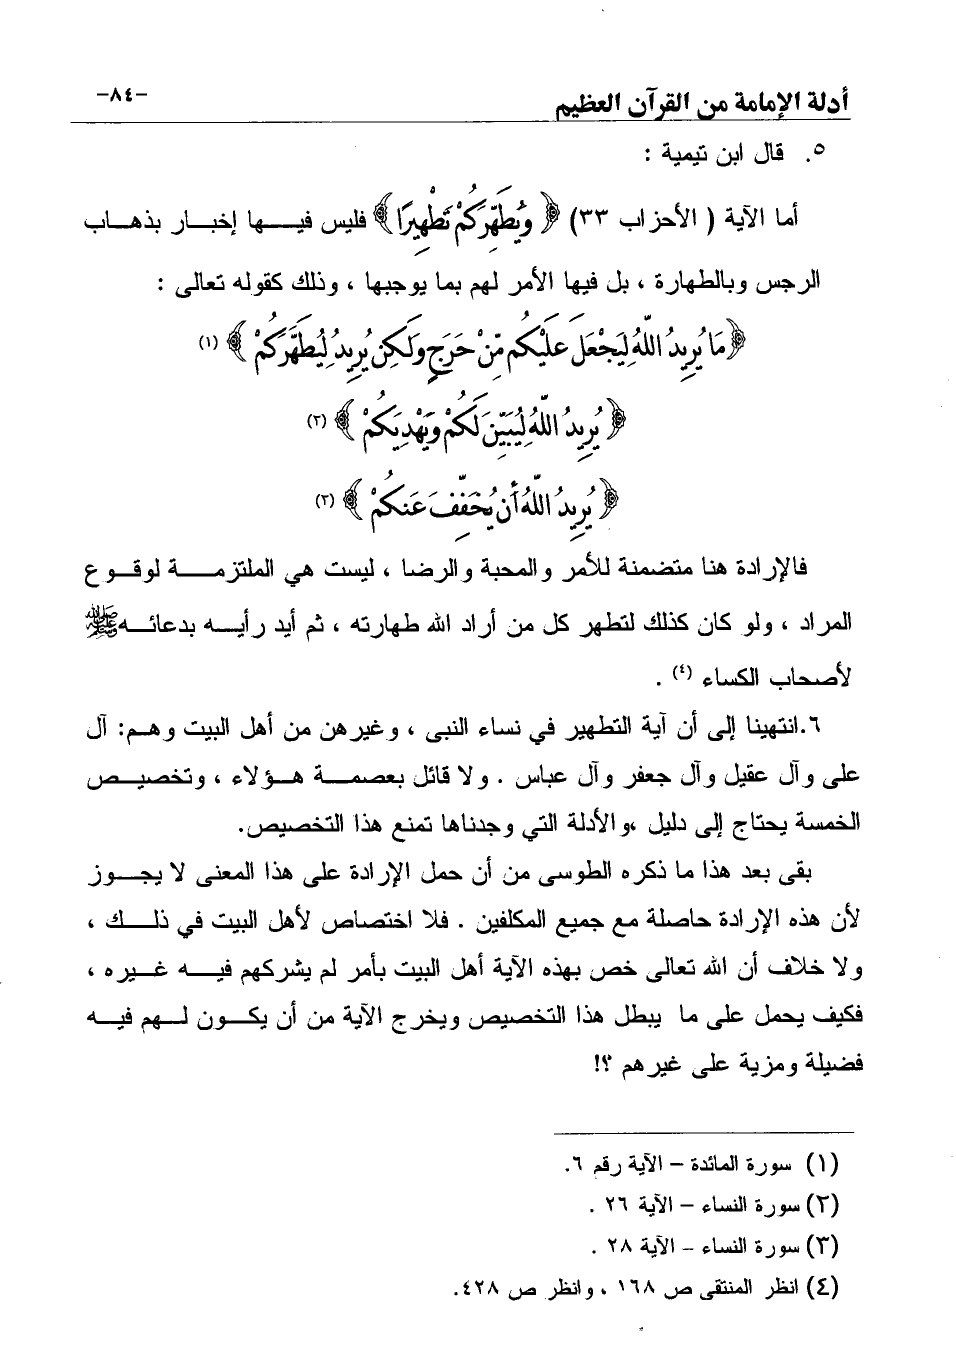 أدلة الإمامة من القرآن العظيم
-٨٤-
٥. قال ابن تيمية :
أما الآية ( الأحزاب ٣٣) ﴿ وَيُطَهِّرَكُمْ تَطْهِيرًا ﴾ فليس فيها إخبار بذهاب
الرجس وبالطهارة ، بل فيها الأمر لهم بما يوجبها ، وذلك كقوله تعالى :
﴿ مَا يُرِيدُ اللَّهُ لِيَجْعَلَ عَلَيْكُم مِّنْ حَرَجٍ وَلَكِن يُرِيدُ لِيُطَهِّرَكُمْ ﴾ (١)
﴿ يُرِيدُ اللَّهُ لِيُبَيِّنَ لَكُمْ وَيَهْدِيَكُمْ ﴾ (٢)
﴿ يُرِيدُ اللَّهُ أَن يُخَفِّفَ عَنكُمْ ﴾ (٣)
فالإرادة هنا متضمنة للأمر والمحبة والرضا ، ليست هي الملتزمة لوقوع
المراد ، ولو كان كذلك لتطهر كل من أراد الله طهارته ، ثم أيد رأيه بدعائه ﷺ
لأصحاب الكساء (٤) .
٦.انتهينا إلى أن آية التطهير في نساء النبى ، وغيرهن من أهل البيت وهم: آل
على وآل عقيل وآل جعفر وآل عباس . ولا قائل بعصمة هؤلاء ، وتخصيص
الخمسة يحتاج إلى دليل ،والأدلة التي وجدناها تمنع هذا التخصيص.
بقى بعد هذا ما ذكره الطوسى من أن حمل الإرادة على هذا المعنى لا يجوز
لأن هذه الإرادة حاصلة مع جميع المكلفين . فلا اختصاص لأهل البيت في ذلك ،
ولا خلاف أن الله تعالى خص بهذه الآية أهل البيت بأمر لم يشركهم فيه غيره ،
فكيف يحمل على ما يبطل هذا التخصيص ويخرج الآية من أن يكون لهم فيه
فضيلة ومزية على غيرهم ؟!
(١) سورة المائدة – الآية رقم ٦.
(٢) سورة النساء – الآية ٢٦ .
(٣) سورة النساء – الآية ٢٨ .
(٤) انظر المنتقى ص ١٦٨ ، وانظر ص ٤٢٨.